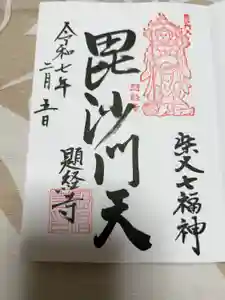 柴又七福神
毘沙門天
令和七年
二月五日
題経寺